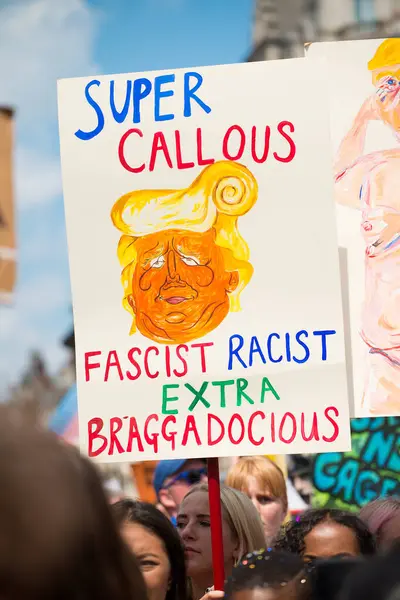 SUPER
CALLOUS
FASCIST RACIST
EXTRA
BRAGGADOCIOUS